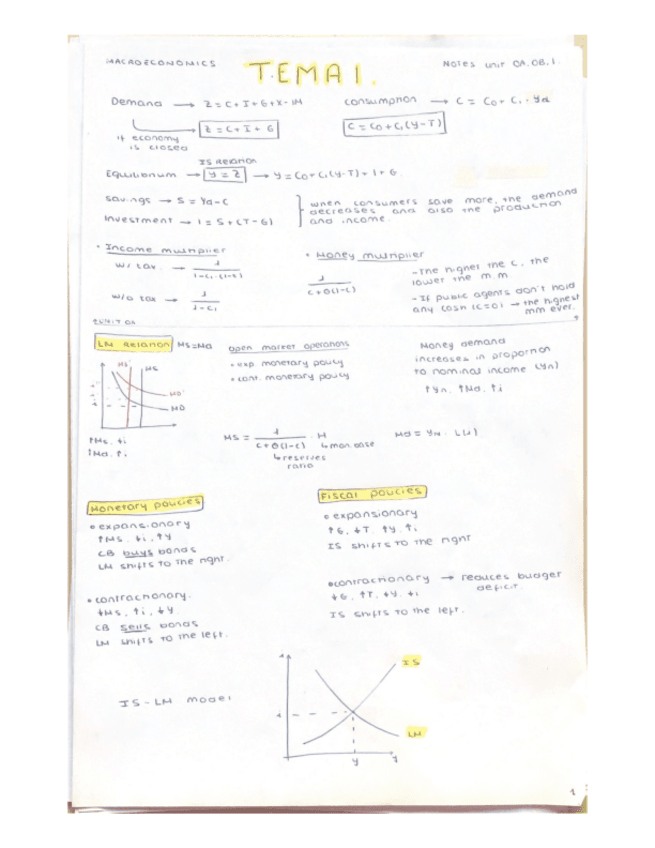 MACROECONOMICS
TEMA 1.
Notes unit 0A.0B.1.
Demand → Z = C + I + G + X - IM
Consumption → C = C0 + C1 · Yd
if economy is closed
Z = C + I + G
C = C0 + C1(Y-T)
IS Relation
Equilibrium → Y = Z → Y = C0 + C1(Y-T) + I + G.
Savings → S = Yd - C
Investment → I = S + (T-G)
when consumers save more, the demand
decreases and also the production
and income.
• Income multiplier
w/ tax → 1 / 1-C1.(1-t)
w/o tax → 1 / 1-C1
• Money multiplier
1 / C+θ(1-C)
- The higher the C, the
lower the m.m
- If public agents don't hold
any cash (C=0) → the highest
mm ever.
LM Relation MS=Md
MS' MS
MD'
MD
↑Ms, ↓i
↑Md, ↑i
Open market operations
• exp monetary policy
• cont. monetary policy
Money demand
increases in proportion
to nominal income (Yn)
↑Yn, ↑Md, ↑i
MS = 1 / C+θ(1-C) · H
↳ mon. base
↳ reserves
ratio
Md = YN · L(i)
Monetary policies
• expansionary
↑Ms, ↓i, ↑Y
CB buys bonds
LM shifts to the right.
• contractionary.
↓Ms, ↑i, ↓Y
CB sells bonds
LM shifts to the left.
Fiscal policies
• expansionary
↑G, ↓T, ↑Y, ↑i
IS shifts to the right
• contractionary → reduces budget
deficit
↓G, ↑T, ↓Y, ↓i
IS shifts to the left.
IS - LM model
i
IS
i
LM
Y
Y
1